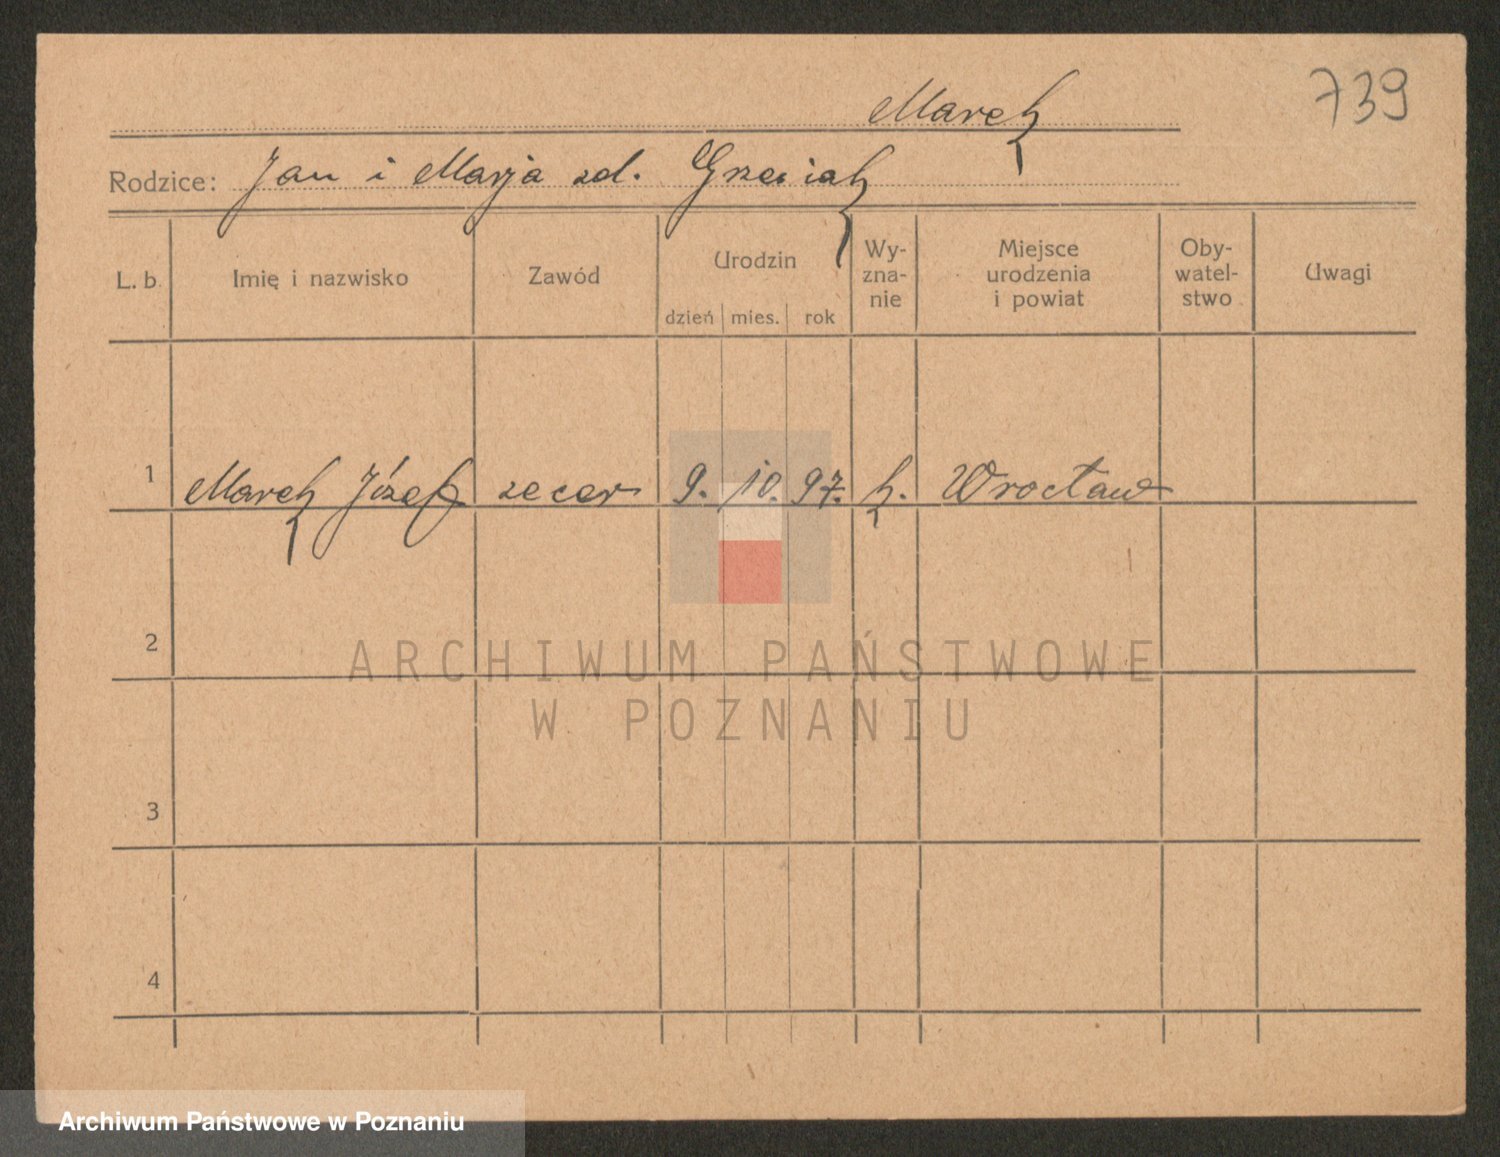 739
Marek
Rodzice: Jan i Marja zd.
L. b. Imię i nazwisko Zawód Urodzin dzień mies. rok Wy-zna-nie Miejsce urodzenia i powiat Oby-watel-stwo Uwagi
1 Marek Józef zecer 9. 10. 97. k. Wrocław
2
ARCHIWUM PAŃSTWOWE
W POZNANIU
3
4
Archiwum Państwowe w Poznaniu